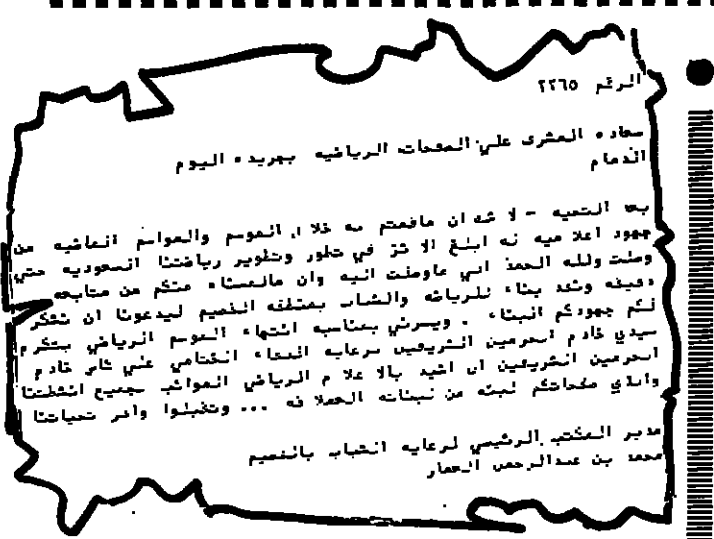 الرقم ٢٢٦٥
سعاده المشرف علي الصفحات الرياضيه بجريده اليوم
الدمام
بعد التحيه - لا شك ان ماقمتم به خلال الموسم والمواسم الماضيه من
جهود اعلاميه له ابلغ الاثر في تطور وتطوير رياضتنا السعوديه حتي
وصلت ولله الحمد الي ماوصلت اليه وان مالمسناه منكم من متابعه
دقيقه ونقد بناء للرياضه والشباب بمنطقه القصيم ليدعونا ان نشكر
لكم جهودكم البناءه . ويسرني بمناسبه انتهاء الموسم الرياضي بتكرم
سيدي خادم الحرمين الشريفين برعايه اللقاء الختامي علي كاس خادم
الحرمين الشريفين ان اشيد بالاعلام الرياضي المواكب لجميع انشطتنا
والذي صفحاتكم لبنه من لبناته العملاقه ... وتقبلوا وافر تحياتنا
مدير المكتب الرئيسي لرعايه الشباب بالقصيم
محمد بن عبدالرحمن العمار